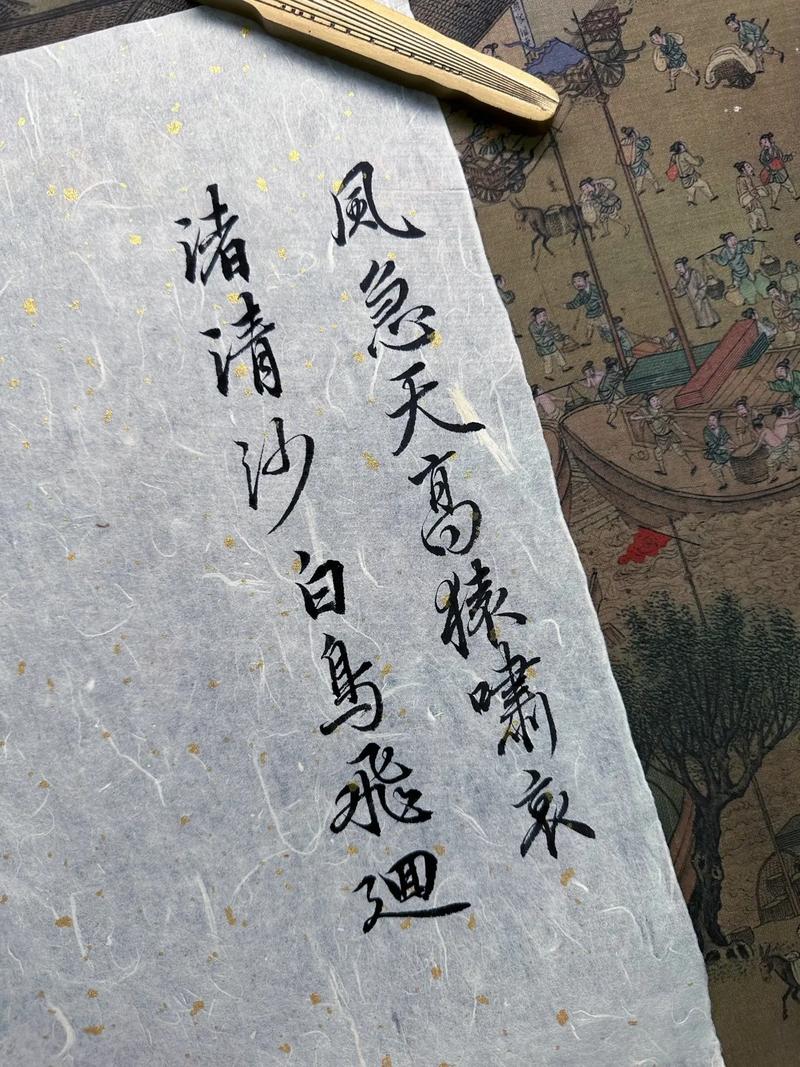 風急天高猿嘯哀
渚清沙白鳥飛廻